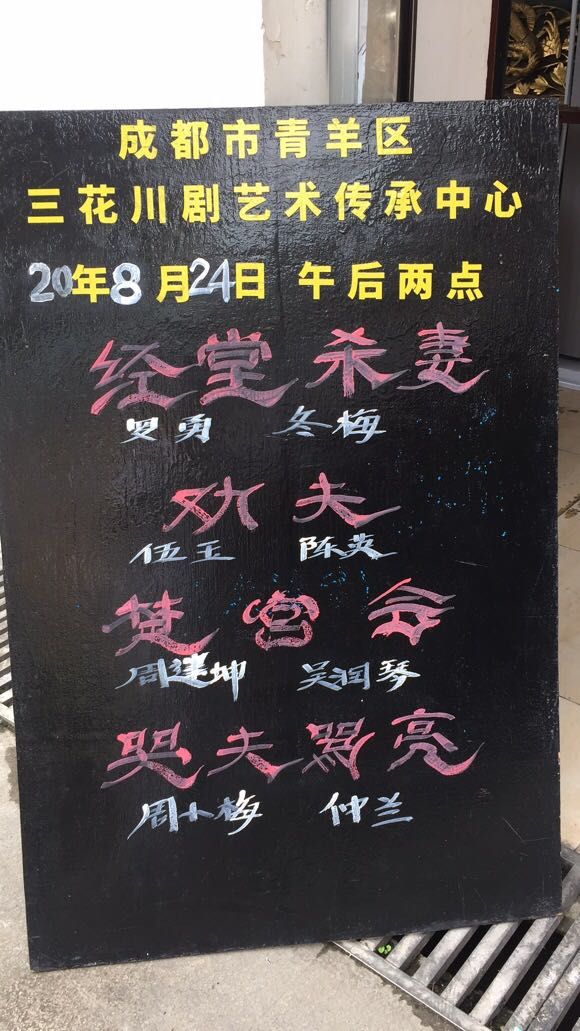 成都市青羊区
三花川剧艺术传承中心
20年8月24日 午后两点
经堂杀妻
罗勇 冬梅
劝夫
伍王 陈英
楚宫会
周建坤 吴润琴
哭夫骂亮
周小梅 仲兰